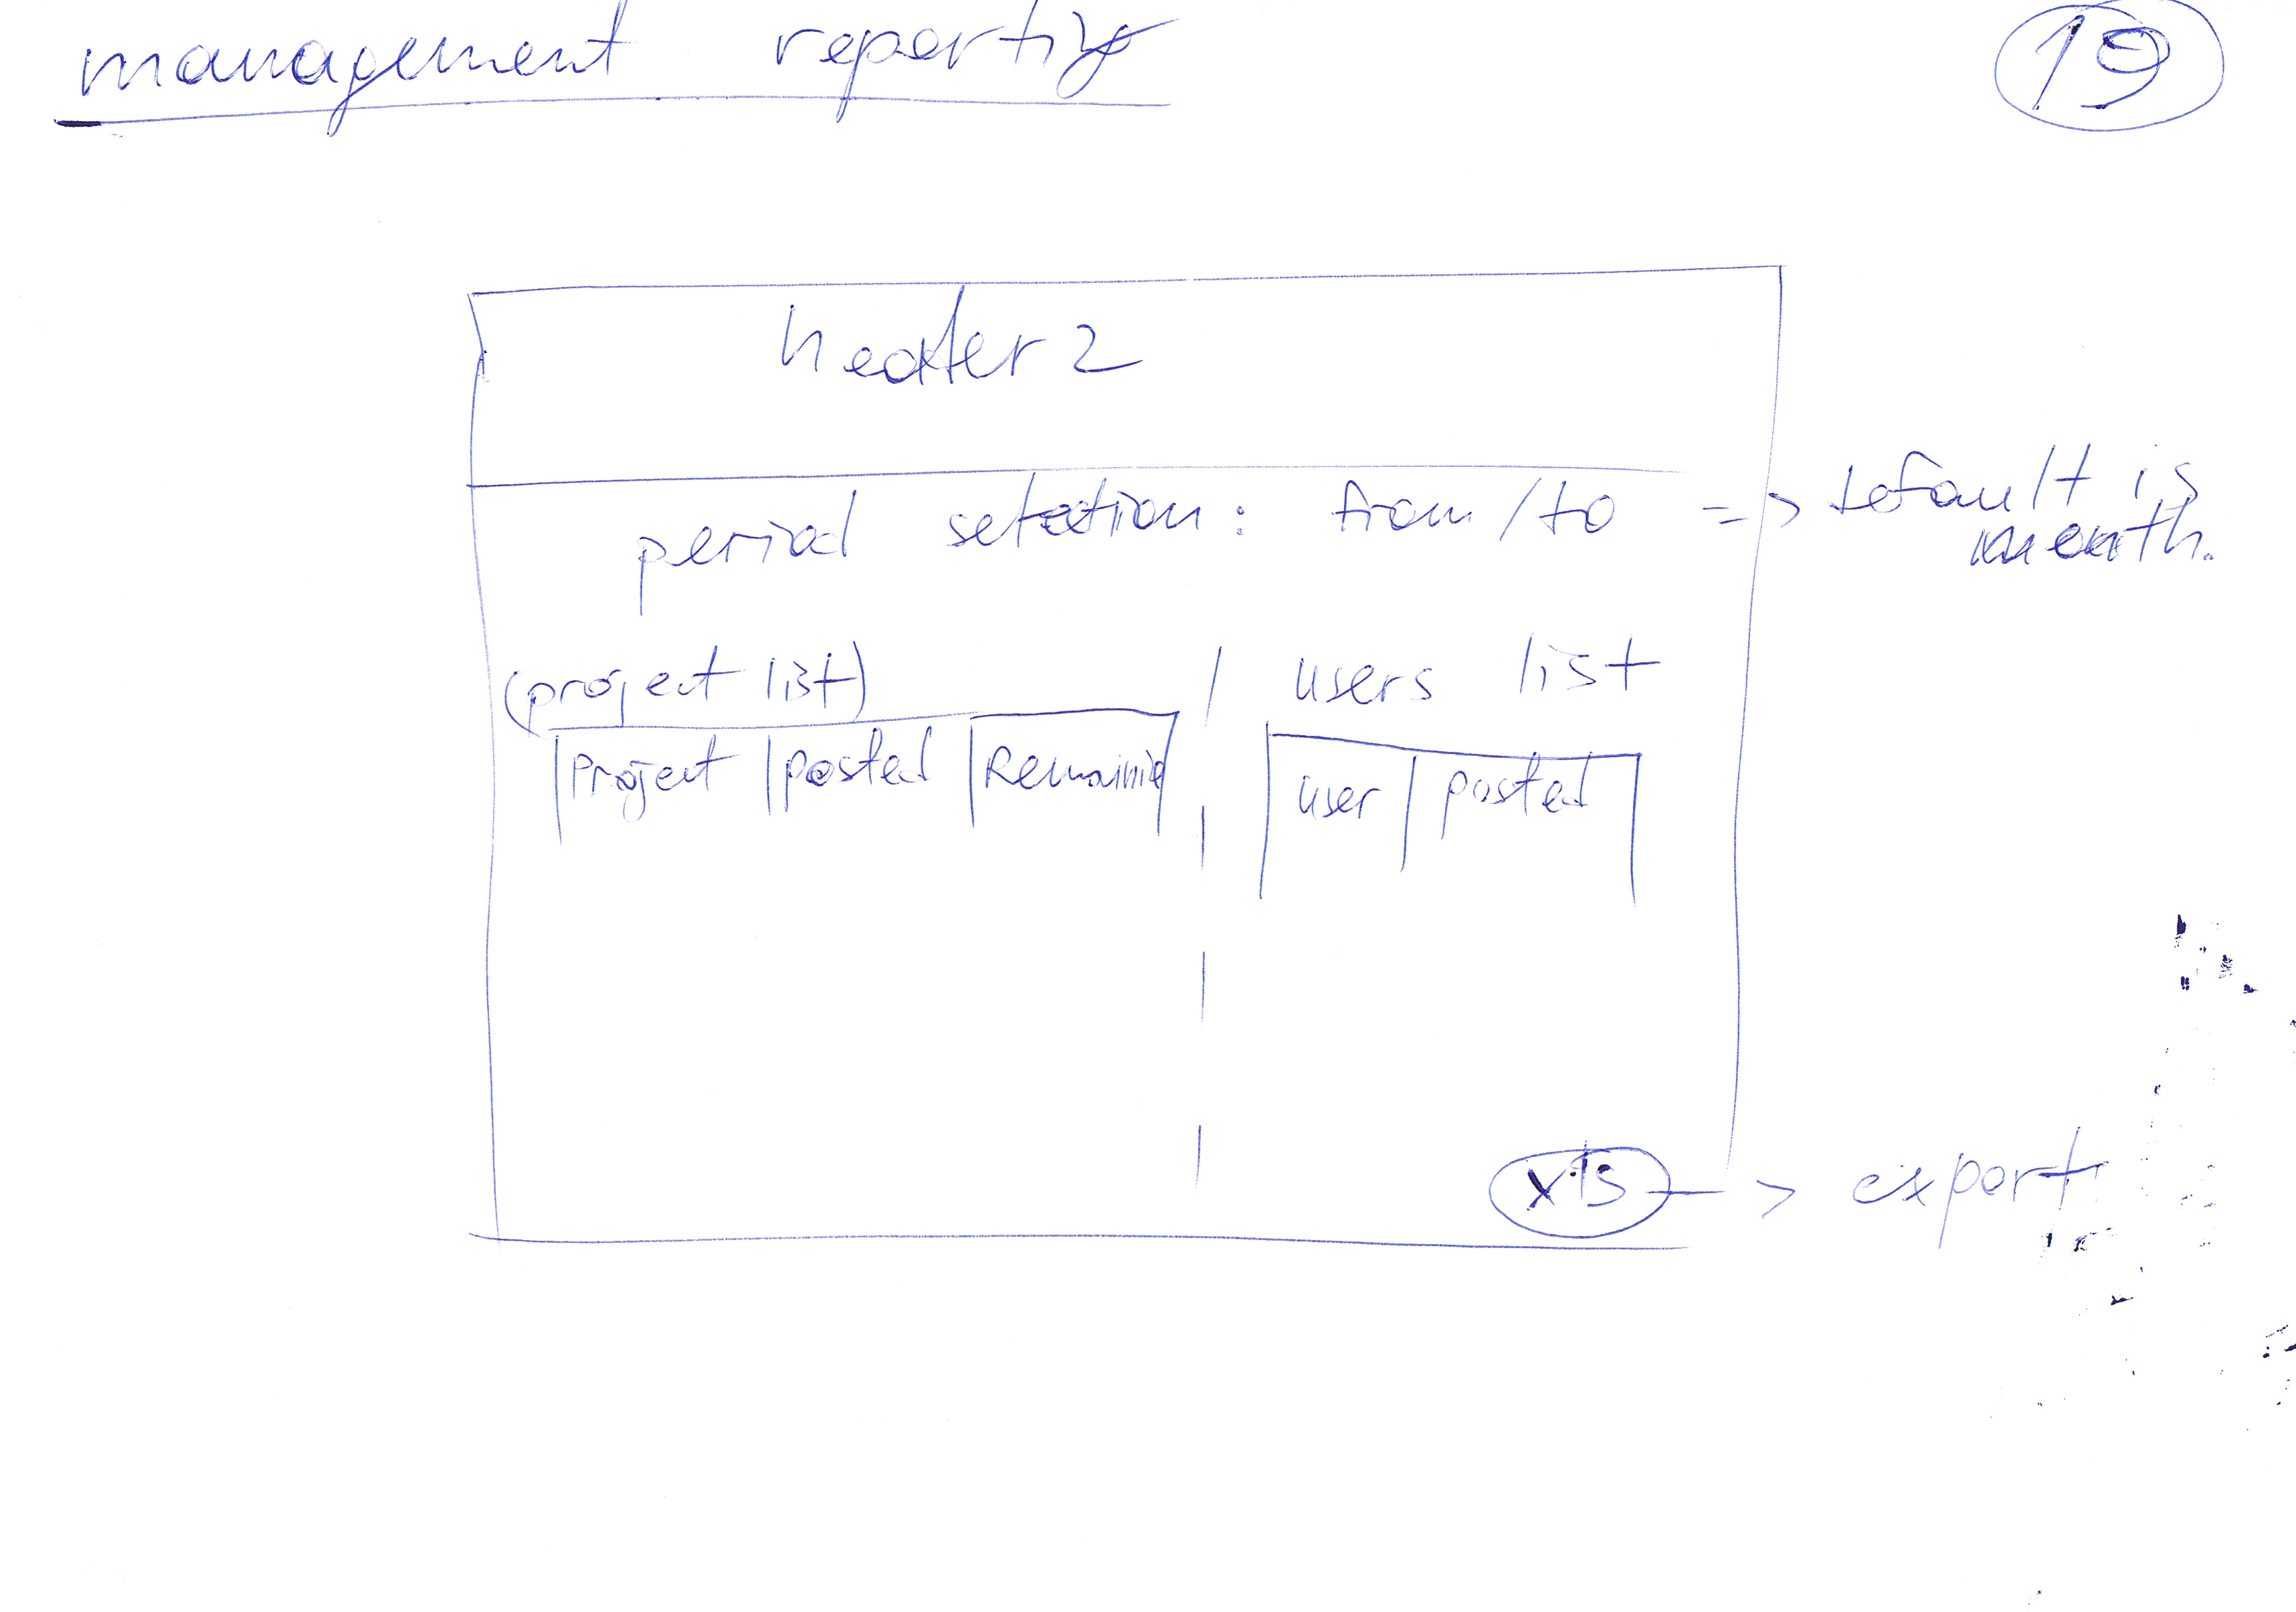 management reporting
19
header 2
period selection: from / to => default is
month.
(project list) | users list
| Project | posted | Remaining
| user | posted |
xls -> export